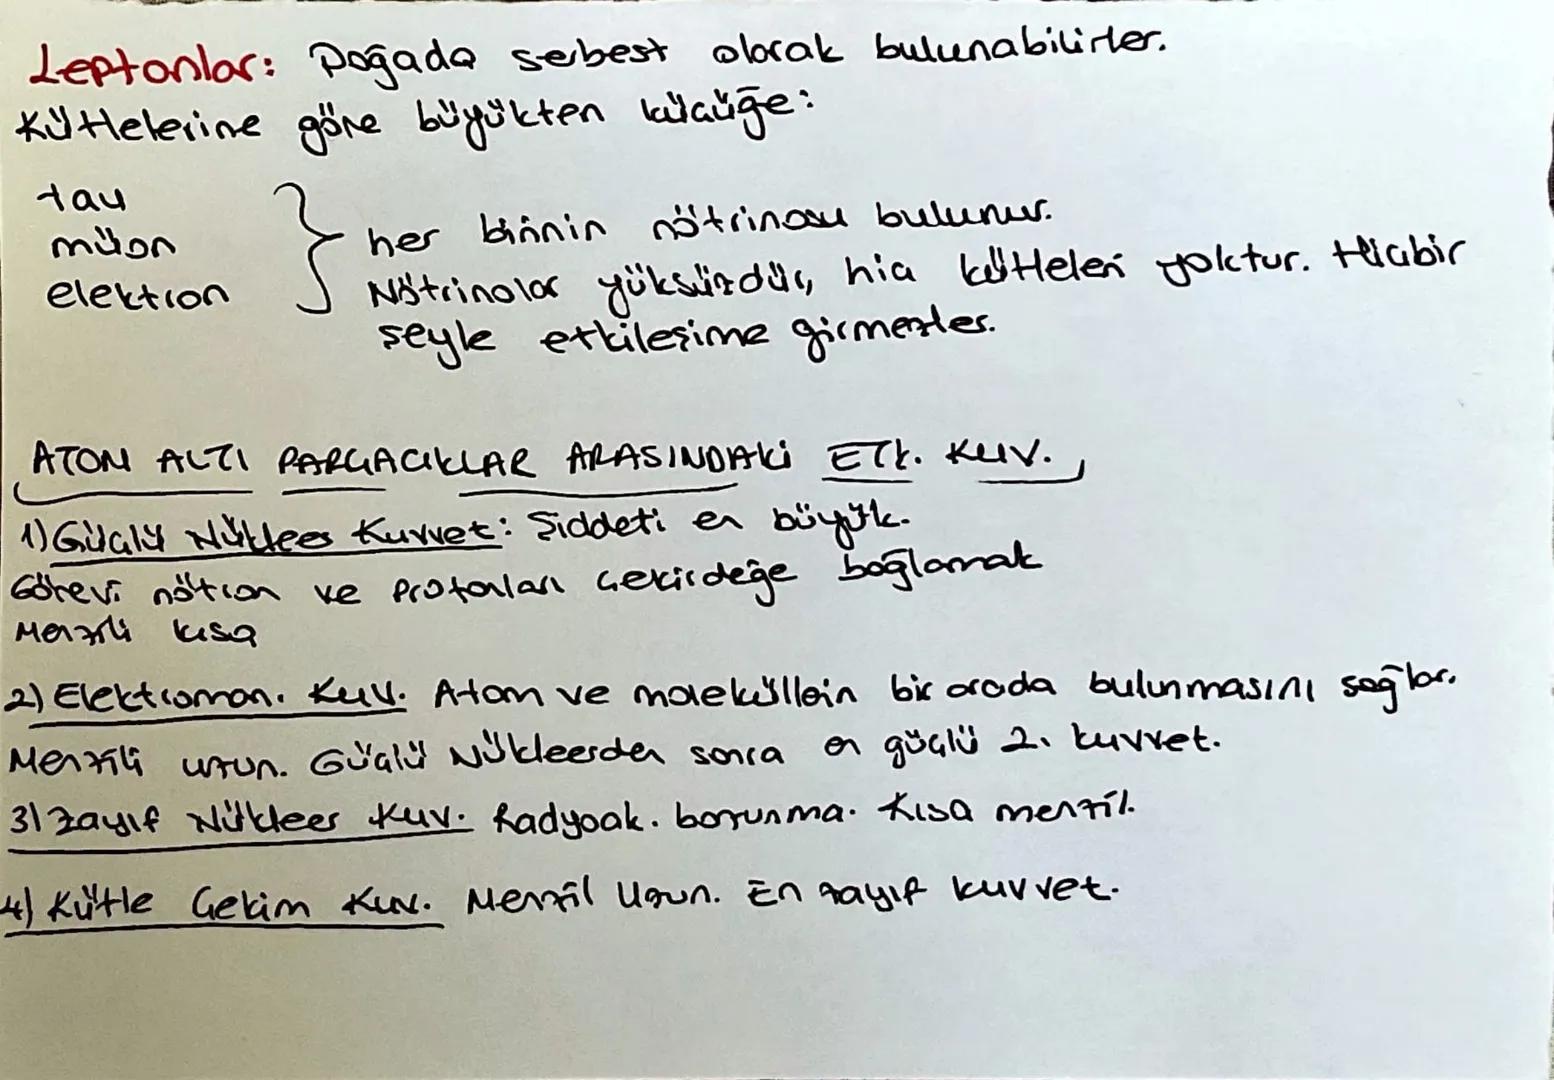 Leptonlar: Doğada serbest olarak bulunabilirler.
Kütlelerine göre büyükten küçüğe:
tau
müon
elektron
her birinin nötrinosu bulunur.
Nötrinolar yüksüzdür, hiç kütleleri yoktur. Hiçbir
şeyle etkileşime girmezler.
ATOM ALTI PARÇACIKLAR ARASINDAKİ ETK. KUV.
1) Güçlü Nükleer Kuvvet: Şiddeti en büyük.
Görevi nötron ve protonları çekirdeğe bağlamak
Menzili kısa
2) Elektroman. Kuv. Atom ve moleküllerin bir arada bulunmasını sağlar.
Menzili uzun. Güçlü Nükleerden sonra en güçlü 2. kuvvet.
3) Zayıf Nükleer Kuv. Radyoak. bozunma. Kısa menzil.
4) Kütle Çekim Kuv. Menzil Uzun. En zayıf kuvvet.